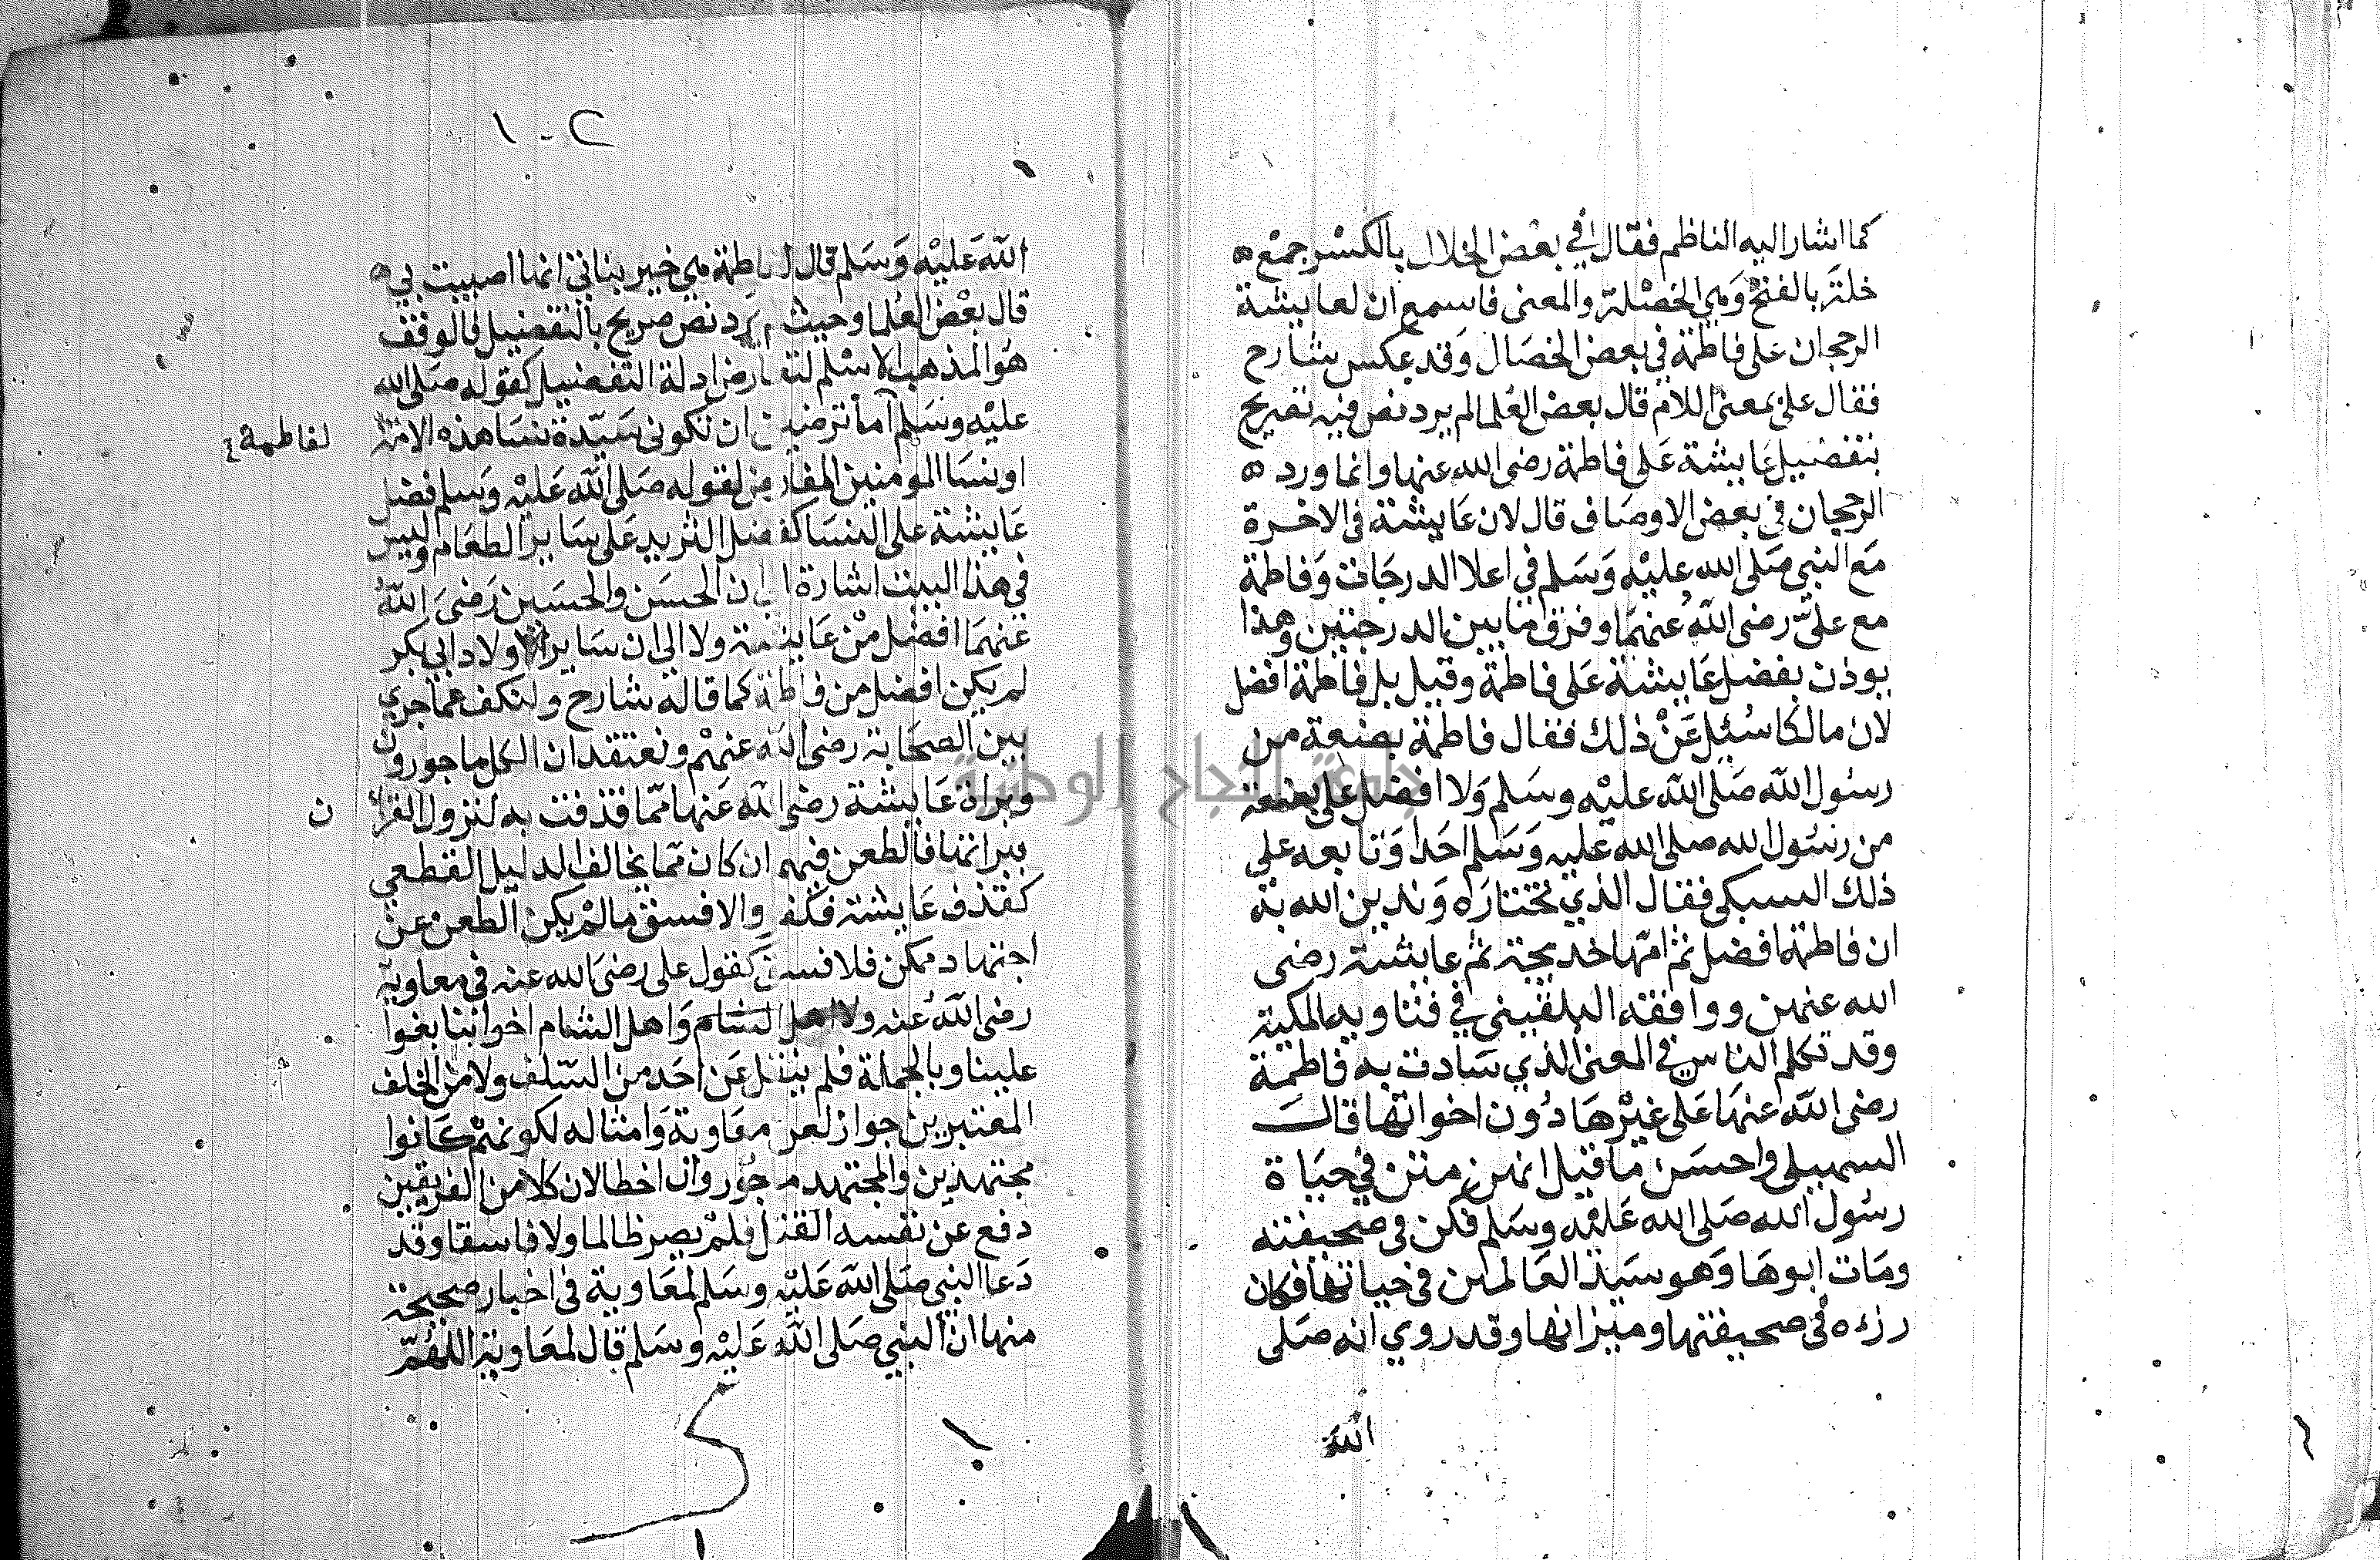 كما اشار اليه الناظم فقال في بعض الخلال بالكسر جمع ه
خلة بالفتح وهي الخصلة والمعنى فاسمع ان لعايشة
الرجحان على فاطمة في بعض الخصال وقد عكس شارح
فقال على بمعنى اللام قال بعض العلما لم يرد نص فيه تصريح
بتفضيل عايشة على فاطمة رضى الله عنها وانما ورد ه
الرجحان في بعض الاوصاف قال لان عايشة فى الاخرة
مع النبي صلى الله عليه وسلم في اعلا الدرجات وفاطمة
مع على رضى الله عنهما وفرق ما بين الدرجتين وهذا
يوذن بفضل عايشة على فاطمة وقيل بل فاطمة افضل
لان مالكا سئل عن ذلك فقال فاطمة بضعة من
رسول الله صلى الله عليه وسلم ولا افضل على بضعة
من رسول الله صلى الله عليه وسلم احدا وتابعه على
ذلك السبكى فقال الذي نختاره وندين الله به
ان فاطمة افضل ثم امها خديجة ثم عايشة رضى
الله عنهن ووافقه البلقيني في فتاويه المكية
وقد تكلم الناس في المعنى الذي سادت به فاطمة
رضى الله عنها على غيرها دون اخواتها قال
السهيلى واحسن ما قيل انهن متن في حياة
رسول الله صلى الله عليه وسلم فكن في صحيفته
ومات ابوها وهو سيد العالمين في حياتها فكان
رزءه في صحيفتها وميزانها وقد روي انه صلى
الله
١٠٢
الله عليه وسلم قال لفاطمة هي خير بناتي انما اصيبت بي ه
قال بعض العلما وحيث لم يرد نص صريح بالتفضيل فالوقف
هو المذهب الاسلم لتعارض ادلة التفضيل كقوله صلى الله
عليه وسلم اما ترضين ان تكونى سيدة نسا هذه الامة
لفاطمة
او نسا المومنين المعارض لقوله صلى الله عليه وسلم فضل
عايشة على النسا كفضل الثريد على ساير الطعام وليس
في هذا البيت اشارة الى ان الحسن والحسين رضى الله
عنهما افضل من عايشة ولا الى ان ساير اولاد ابى بكر
لم يكن افضل من فاطمة كما قاله شارح ولنكف عما جري
بين الصحابة رضى الله عنهم ونعتقد ان الكل ماجورون
وبراة عايشة رضى الله عنها مما قذفت به لنزول القرا
ن
ببراتها فالطعن فيهم ان كان مما يخالف الدليل القطعي
كقذف عايشة فكفر والا ففسق ما لم يكن الطعن عن
اجتهاد ممكن فلا فسق كقول على رضى الله عنه في معاوية
رضى الله عنه ولا اهل الشام واهل الشام اخواننا بغوا
علينا وبالجملة فلم ينقل عن احد من السلف ولا من الخلف
المعتبرين جواز لعن معاوية وامثاله لكونهم كانوا
مجتهدين والمجتهد ماجور وان اخطا لان كلا من الفريقين
دفع عن نفسه القتل فلم يصر ظالما ولا فاسقا وقد
دعا النبي صلى الله عليه وسلم لمعاوية في اخبار صحيحة
منها ان النبي صلى الله عليه وسلم قال لمعاوية اللهم
جامعة النجاح الوطنية